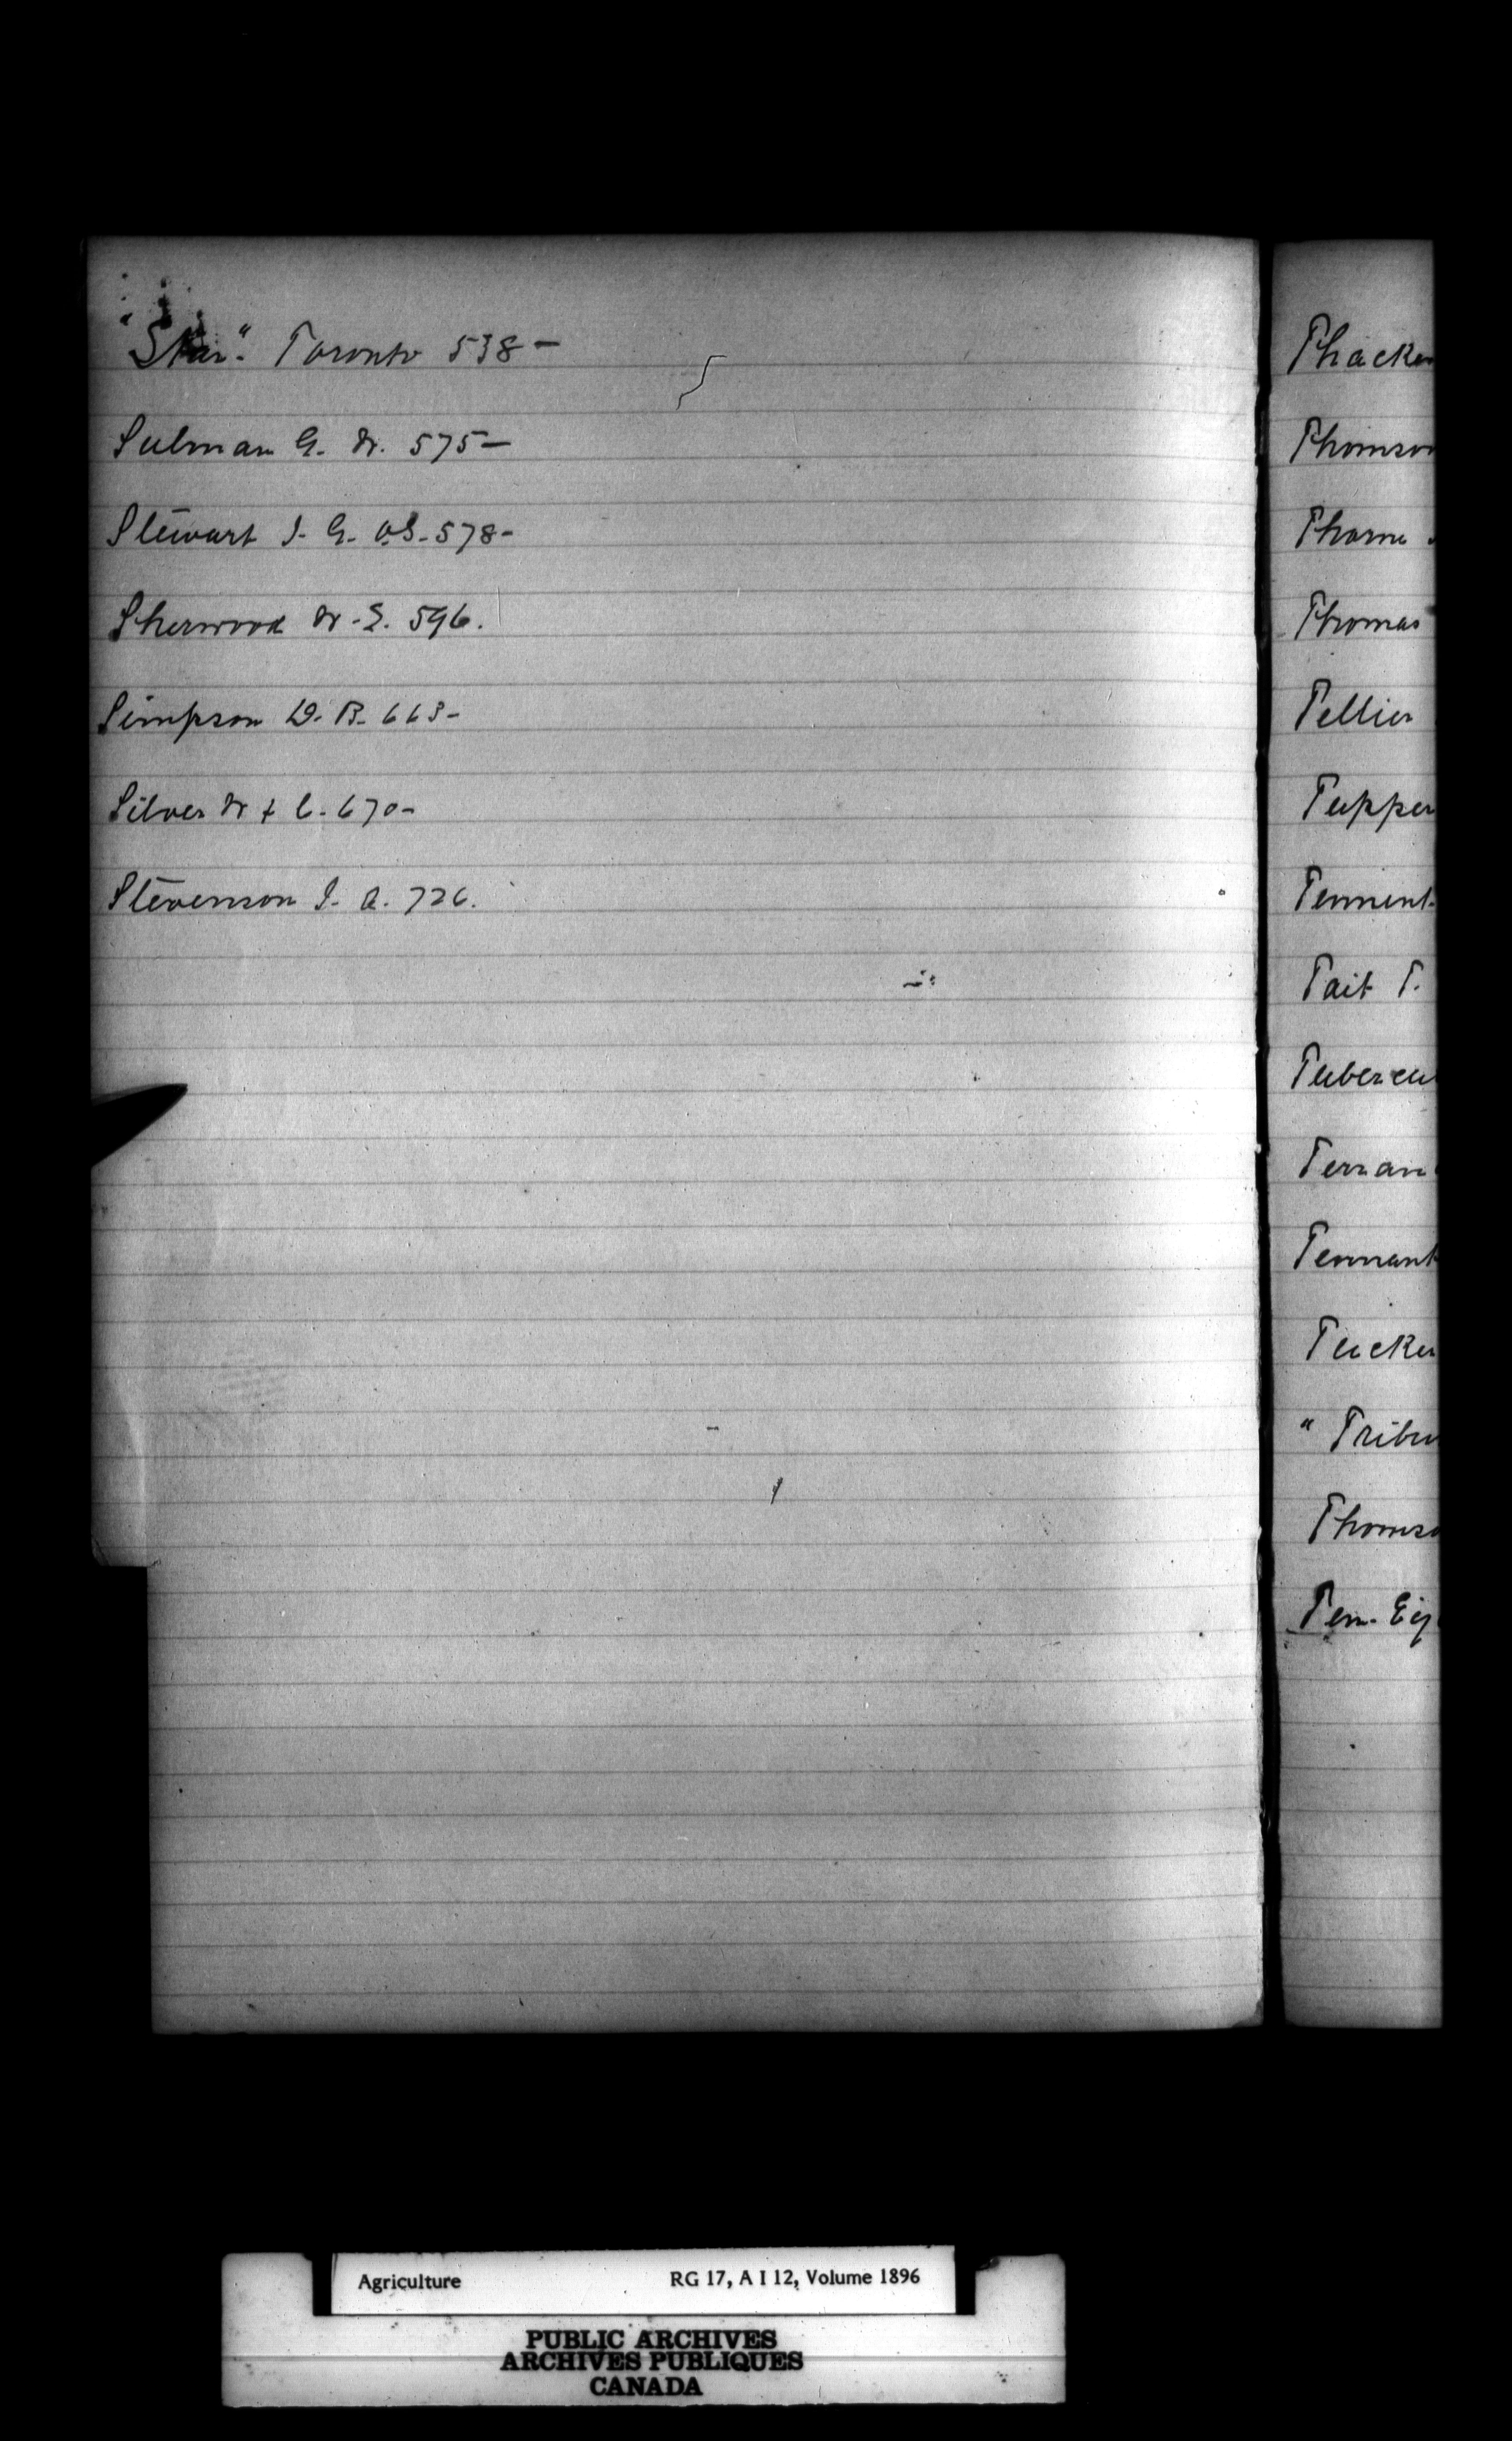 "Star". Toronto 538-
Sulman G. W. 575-
Stewart J. G. 578-
Sherwood W. S. 596.
Simpson D. B. 663-
Silver W & C. 670-
Stevenson J. A. 726.
Thacker
Thomson
Thorne
Thomas
Tellier
Tupper
Tennent
Tait T.
Tubercu
Terran
Tennant
Tucker
"Tribu
Thomso
Ten-Ey
Agriculture RG 17, A I 12, Volume 1896
PUBLIC ARCHIVES
ARCHIVES PUBLIQUES
CANADA